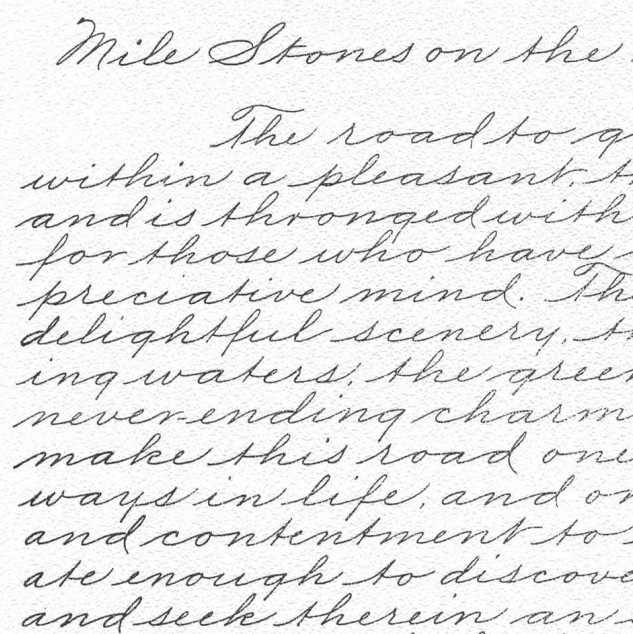 Mile Stones on the
The road to g
within a pleasant, th
and is thronged with
for those who have
preciative mind. Th
delightful scenery, th
ing waters, the green
never-ending charm
make this road one
ways in life, and on
and contentment to
ate enough to discove
and seek therein an